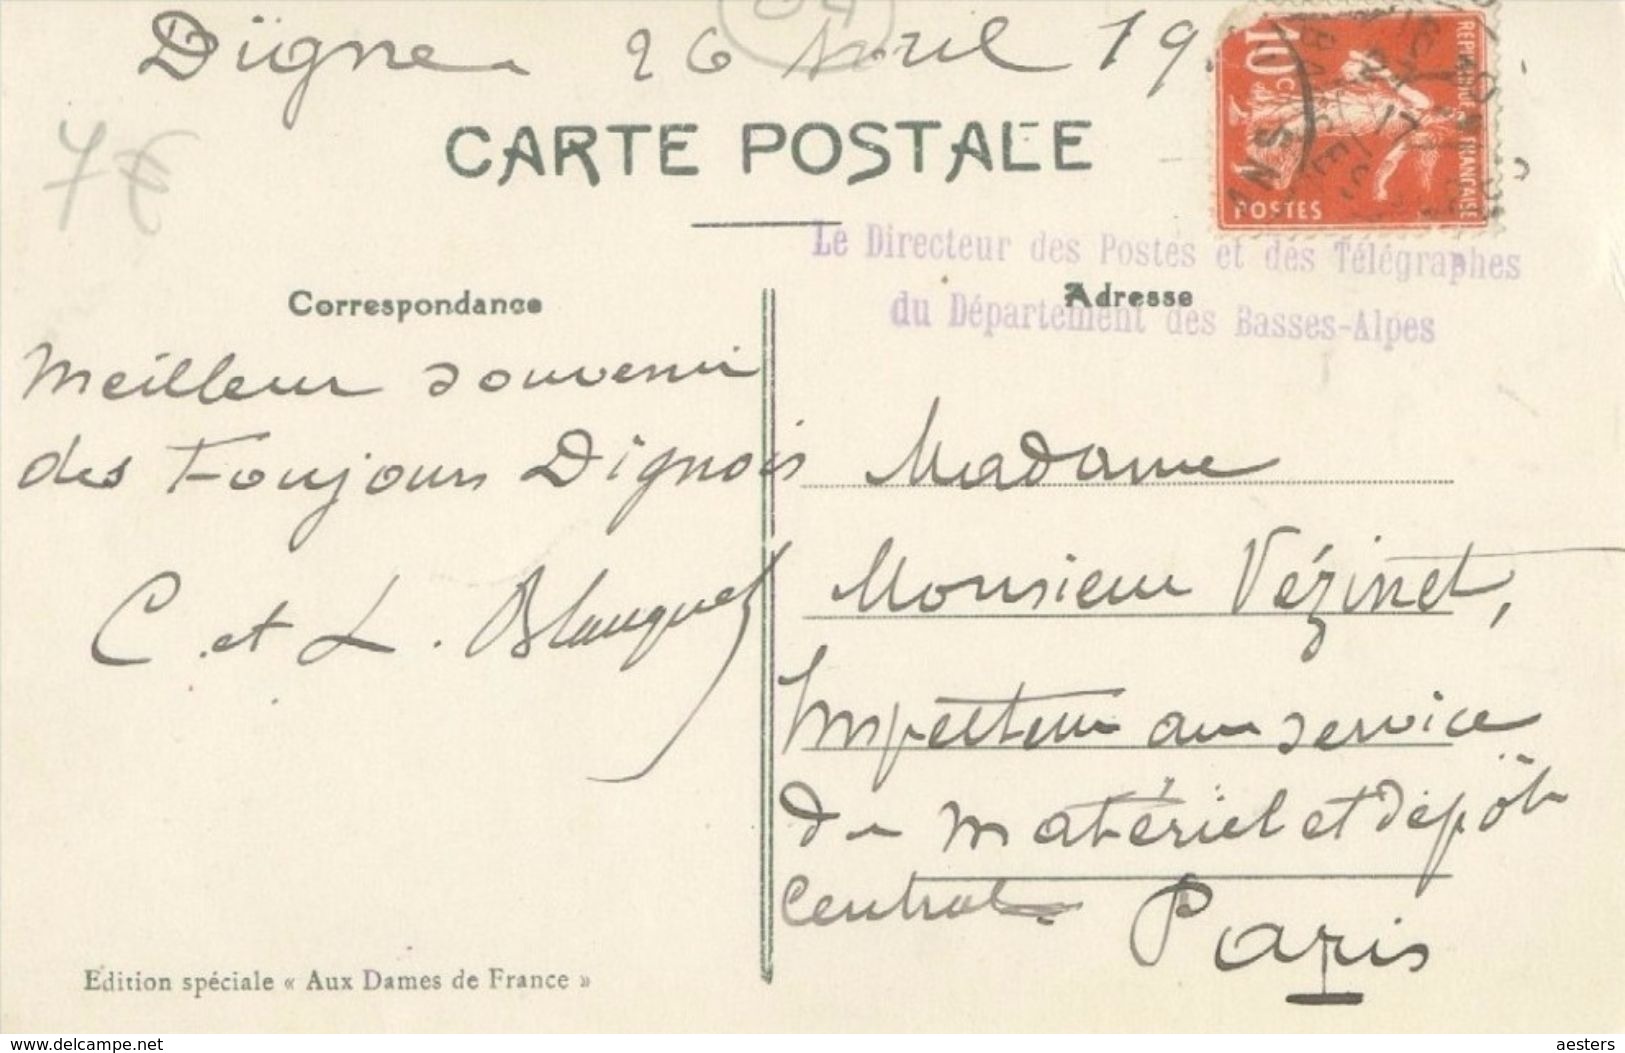 Digne 26 Avril 19
04
7€
CARTE POSTALE
10c
REPUBLIQUE FRANÇAISE
POSTES
Le Directeur des Postes et des Télégraphes
du Département des Basses-Alpes
Correspondance
Meilleur souvenir
des Toujours Dignois
C. et L. Blanquet
Edition spéciale « Aux Dames de France »
Adresse
Madame
Monsieur Vézinet,
Inspecteur au service
du matériel et dépôt
Central
Paris
www.delcampe.net
aesters